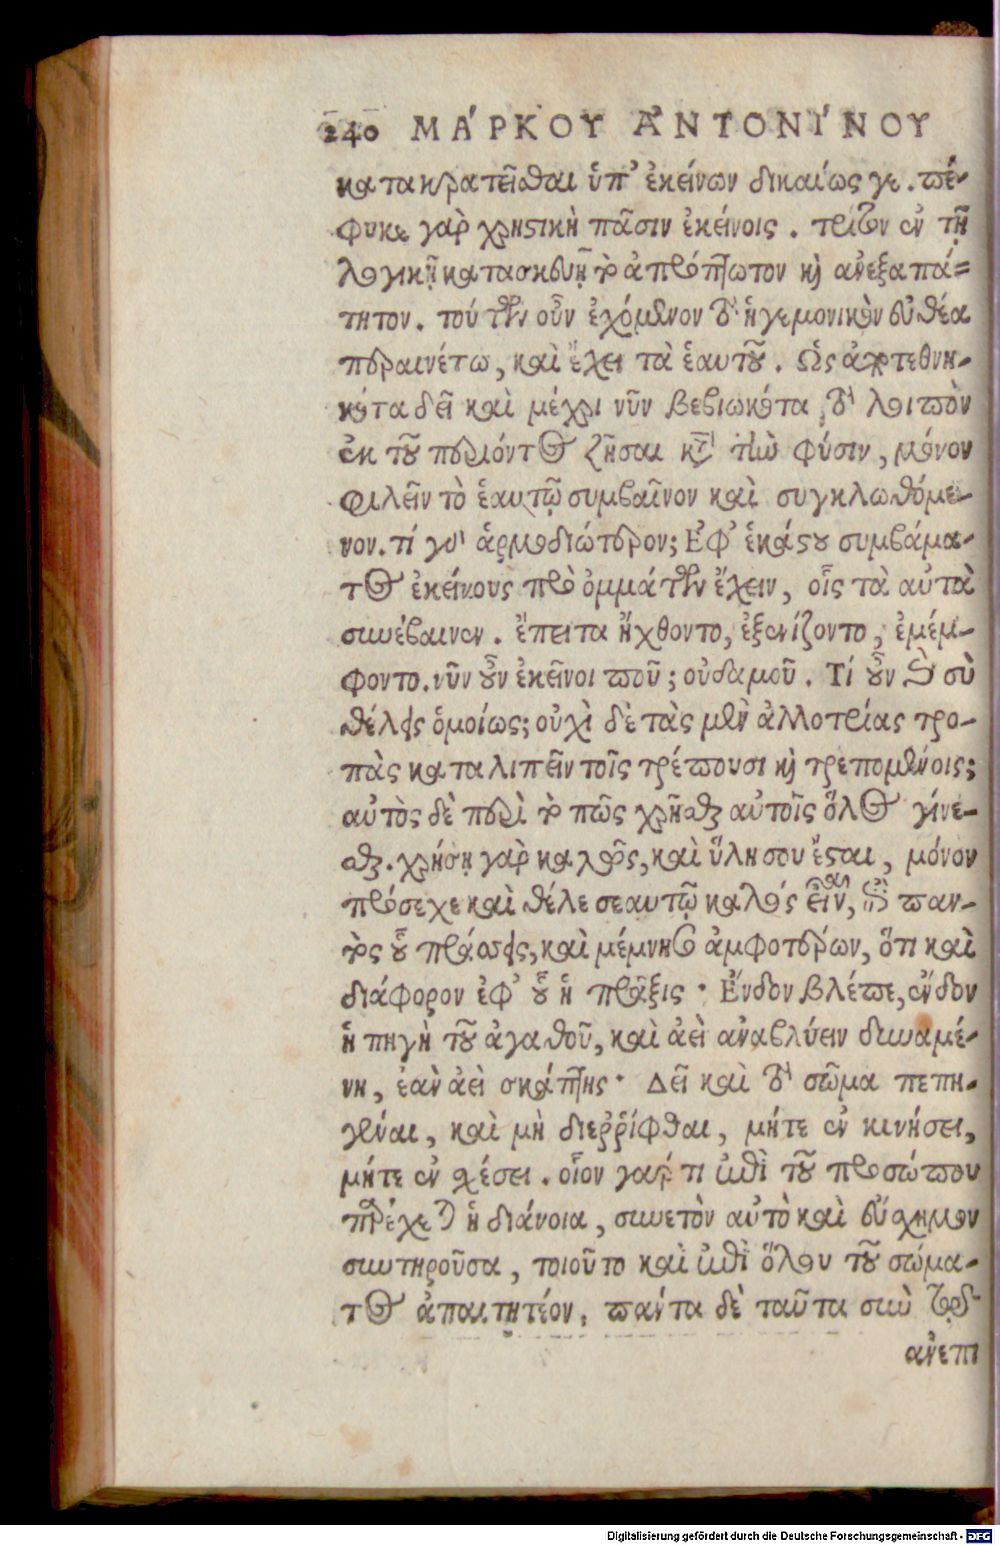 240 ΜΆΡΚΟΥ ἈΝΤΟΝΊΝΟΥ
κατακρατεῖσθαι ὑπ' ἐκείνων δικαίως γε. πέ-
φυκε γὰρ χρηστικὴ πᾶσιν ἐκείνοις. τρίτον ἐν τῇ
λογικῇ κατασκευῇ τὸ ἀπρόπτωτον καὶ ἀνεξαπά-
τητον. τούτων οὖν ἐχόμενον τὸ ἡγεμονικὸν εὐθέα
περαινέτω, καὶ ἔχει τὰ ἑαυτοῦ. Ὡς ἀποτεθνη-
κότα δεῖ καὶ μέχρι νῦν βεβιωκότα, τὸ λοιπὸν
ἐκ τοῦ περιόντος ζῆσαι κατὰ τὴν φύσιν, μόνον
φιλεῖν τὸ ἑαυτῷ συμβαῖνον καὶ συγκλωθόμε-
νον. τί γὰρ ἁρμοδιώτερον; Ἐφ' ἑκάστου συμβάμα-
τος ἐκείνους πρὸ ὀμμάτων ἔχειν, οἷς τὰ αὐτὰ
συνέβαινεν. ἔπειτα ἤχθοντο, ἐξενίζοντο, ἐμέμ-
φοντο. νῦν οὖν ἐκεῖνοι ποῦ; οὐδαμοῦ. Τί οὖν καὶ σὺ
θέλεις ὁμοίως; οὐχὶ δὲ τὰς μὲν ἀλλοτρίας τρο-
πὰς καταλιπεῖν τοῖς τρέπουσι καὶ τρεπομένοις;
αὐτὸς δὲ περὶ τὸ πῶς χρῆσθαι αὐτοῖς ὅλος γίνε-
σθαι. χρήσῃ γὰρ καλῶς, καὶ ὕλη σου ἔσται, μόνον
πρόσεχε καὶ θέλε σεαυτῷ καλὸς εἶναι, ἐπὶ παν-
τὸς οὗ πράσσεις, καὶ μέμνησο ἀμφοτέρων, ὅτι καὶ
διάφορον ἐφ' οὗ ἡ πρᾶξις· Ἔνδον βλέπε, ἔνδον
ἡ πηγὴ τοῦ ἀγαθοῦ, καὶ ἀεὶ ἀναβλύειν δυναμέ-
νη, ἐὰν ἀεὶ σκάπτῃς· Δεῖ καὶ τὸ σῶμα πεπη-
γέναι, καὶ μὴ διεῤῥίφθαι, μήτε ἐν κινήσει,
μήτε ἐν σχέσει. οἷον γάρ τι ἐπὶ τοῦ προσώπου
παρέχεται ἡ διάνοια, συνετὸν αὐτὸ καὶ εὔσχημον
συντηροῦσα, τοιοῦτο καὶ ἐπὶ ὅλου τοῦ σώμα-
τος ἀπαιτητέον. πάντα δὲ ταῦτα σὺν τῷ
ἀνεπι
Digitalisierung gefördert durch die Deutsche Forschungsgemeinschaft - DFG